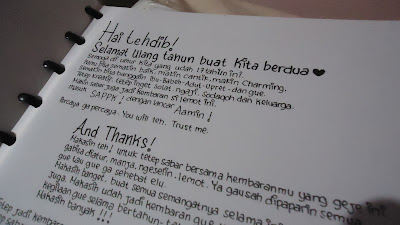 Hai tehdib!
Selamat Ulang tahun buat kita berdua ♥
Semoga di umur kita yang udah 17 tahun ini.
kamu bisa semakin baik, makin cantik, makin charming.
semakin bisa banggain Ibu-Babeh-Adyt-Upret- dan gue.
Tetep kreatif, tetep inget solat, ngaji, sodaqoh dan keluarga.
Makin sabar juga jadi kembaran si lemot ini.
Masuk SAPPK! dengan lancar Aamiin!
Percaya ga percaya. You will teh. Trust me.
And Thanks!
Makasih teh! untuk tetep sabar bersama kembaranmu yang geje ini.
gabisa diatur, manja, ngeselin, lemot. Ya gausah dipaparin semua
gue tau gue ga sehebat elu.
Makasih banget, buat semua semangatnya selama ini
juga. Makasih udah jadi kembaran gue
kegilaan gue selama bertahun-
Makasih banyak !!!
tetep jadi kembaran